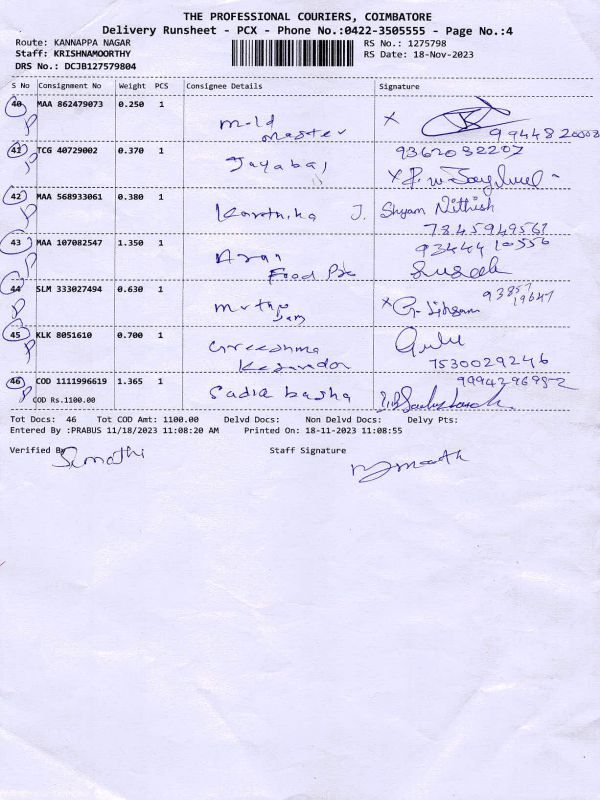 THE PROFESSIONAL COURIERS, COIMBATORE
Delivery Runsheet - PCX - Phone No.:0422-3505555 - Page No.:4
Route: KANNAPPA NAGAR RS No.: 1275798
Staff: KRISHNAMOORTHY RS Date: 18-Nov-2023
DRS No.: DCJB127579804
S No Consignment No Weight PCS Consignee Details Signature
40 MAA 862479073 0.250 1
Mold X
master
41 TCG 40729002 0.370 1 9362032207
Jayabal X
42 MAA 568933061 0.380 1
Karthika J. Shyam Nithish
7845949561
43 MAA 107082547 1.350 1 9344410556
Aran
Food
44 SLM 333027494 0.630 1
X G.
45 KLK 8051610 0.700 1
Greeshma
7530029246
46 COD 1111996619 1.365 1
Sadiq basha
COD Rs.1100.00
Tot Docs: 46 Tot COD Amt: 1100.00 Delvd Docs: Non Delvd Docs: Delvy Pts:
Entered By :PRABUS 11/18/2023 11:08:20 AM Printed On: 18-11-2023 11:08:55
Verified By Staff Signature
Sumathi